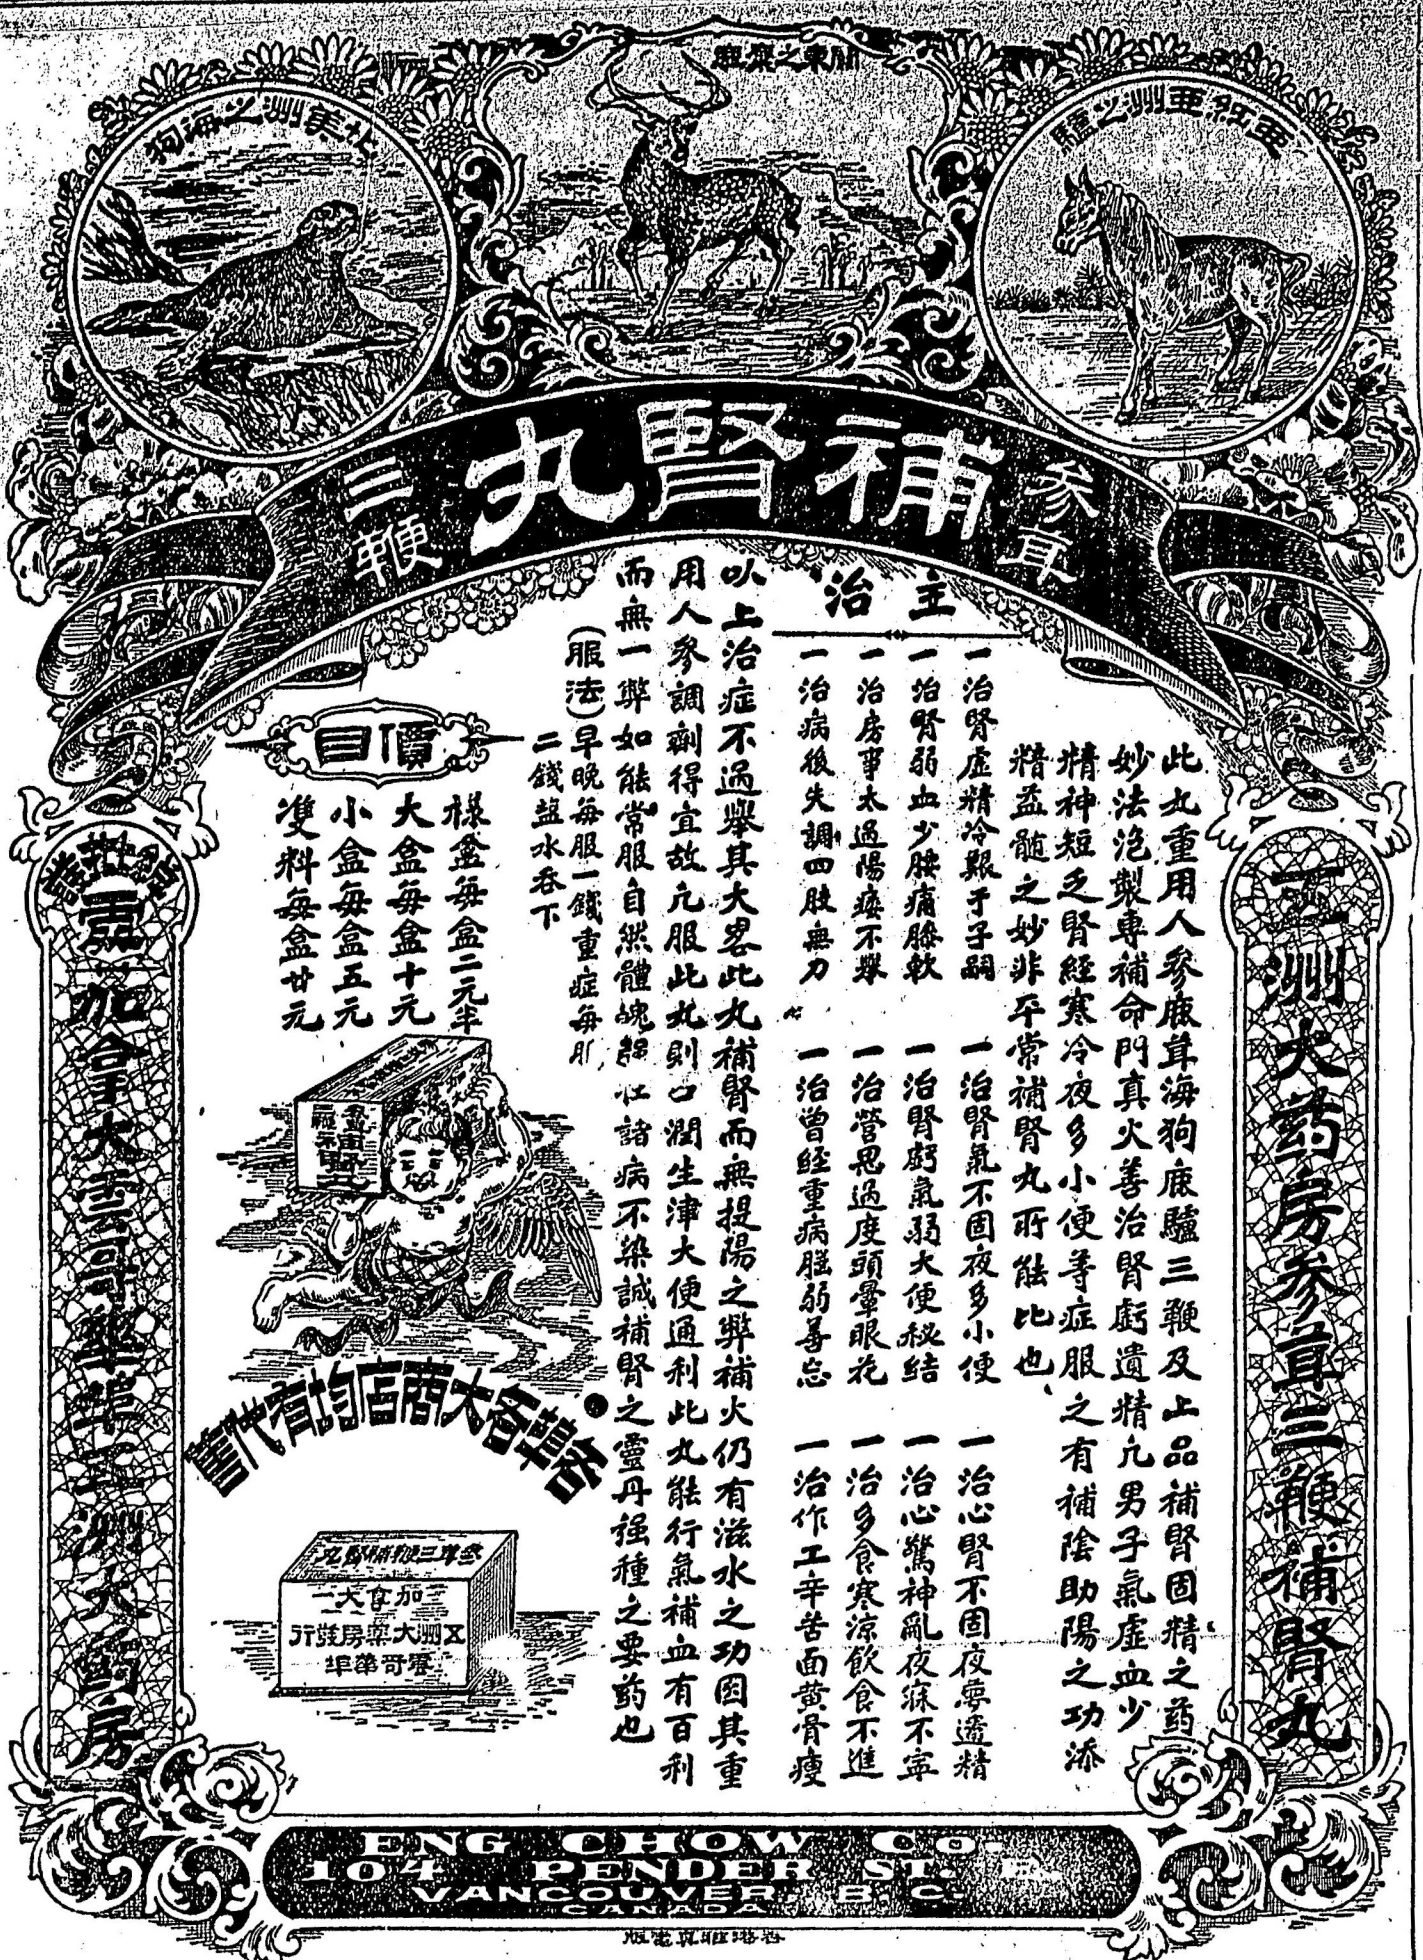 關東之麋鹿
亞細亞洲之驢
北美洲之海狗
參茸
補腎丸
三鞭
五洲大药房參茸三鞭補腎丸
此丸重用人參鹿茸海狗鹿驢三鞭及上品補腎固精之药
妙法泡製專補命門真火善治腎虧遺精凢男子氣虛血少
精神短乏腎經寒冷夜多小便等症服之有補陰助陽之功添
精益髄之妙非平常補腎丸所能比也
主治
一治腎虛精冷艱于子嗣
一治腎氣不固夜多小便
一治心腎不固夜夢遺精
一治腎弱血少腰痛膝軟
一治腎虧氣弱大便秘結
一治心驚神亂夜寐不寧
一治房事太過陽痿不舉
一治營思過度頭暈眼花
一治多食寒涼飲食不進
一治病後失調四肢無力
一治曾經重病腦弱善忘
一治作工辛苦面黃骨瘦
以上治症不過舉其大畧此丸補腎而無提陽之弊補火仍有滋水之功因其重
用人參調劑得宜故凢服此丸則口潤生津大便通利此丸能行氣補血有百利
而無一弊如能常服自然體魄強壯諸病不染誠補腎之靈丹强種之要药也
(服法)早晚每服一錢重症每服
二錢盐水吞下
價目
樣盒每盒二元半
大盒每盒十元
小盒每盒五元
雙料每盒廿元
各埠各大商店均有代售
參茸三鞭補腎丸
加拿大一
五洲大藥房發行
雲哥華埠
總批發
加拿大雲哥華埠五洲大葯房
ENG CHOW Co.
104 PENDER ST. E.
VANCOUVER, B.C.
CANADA